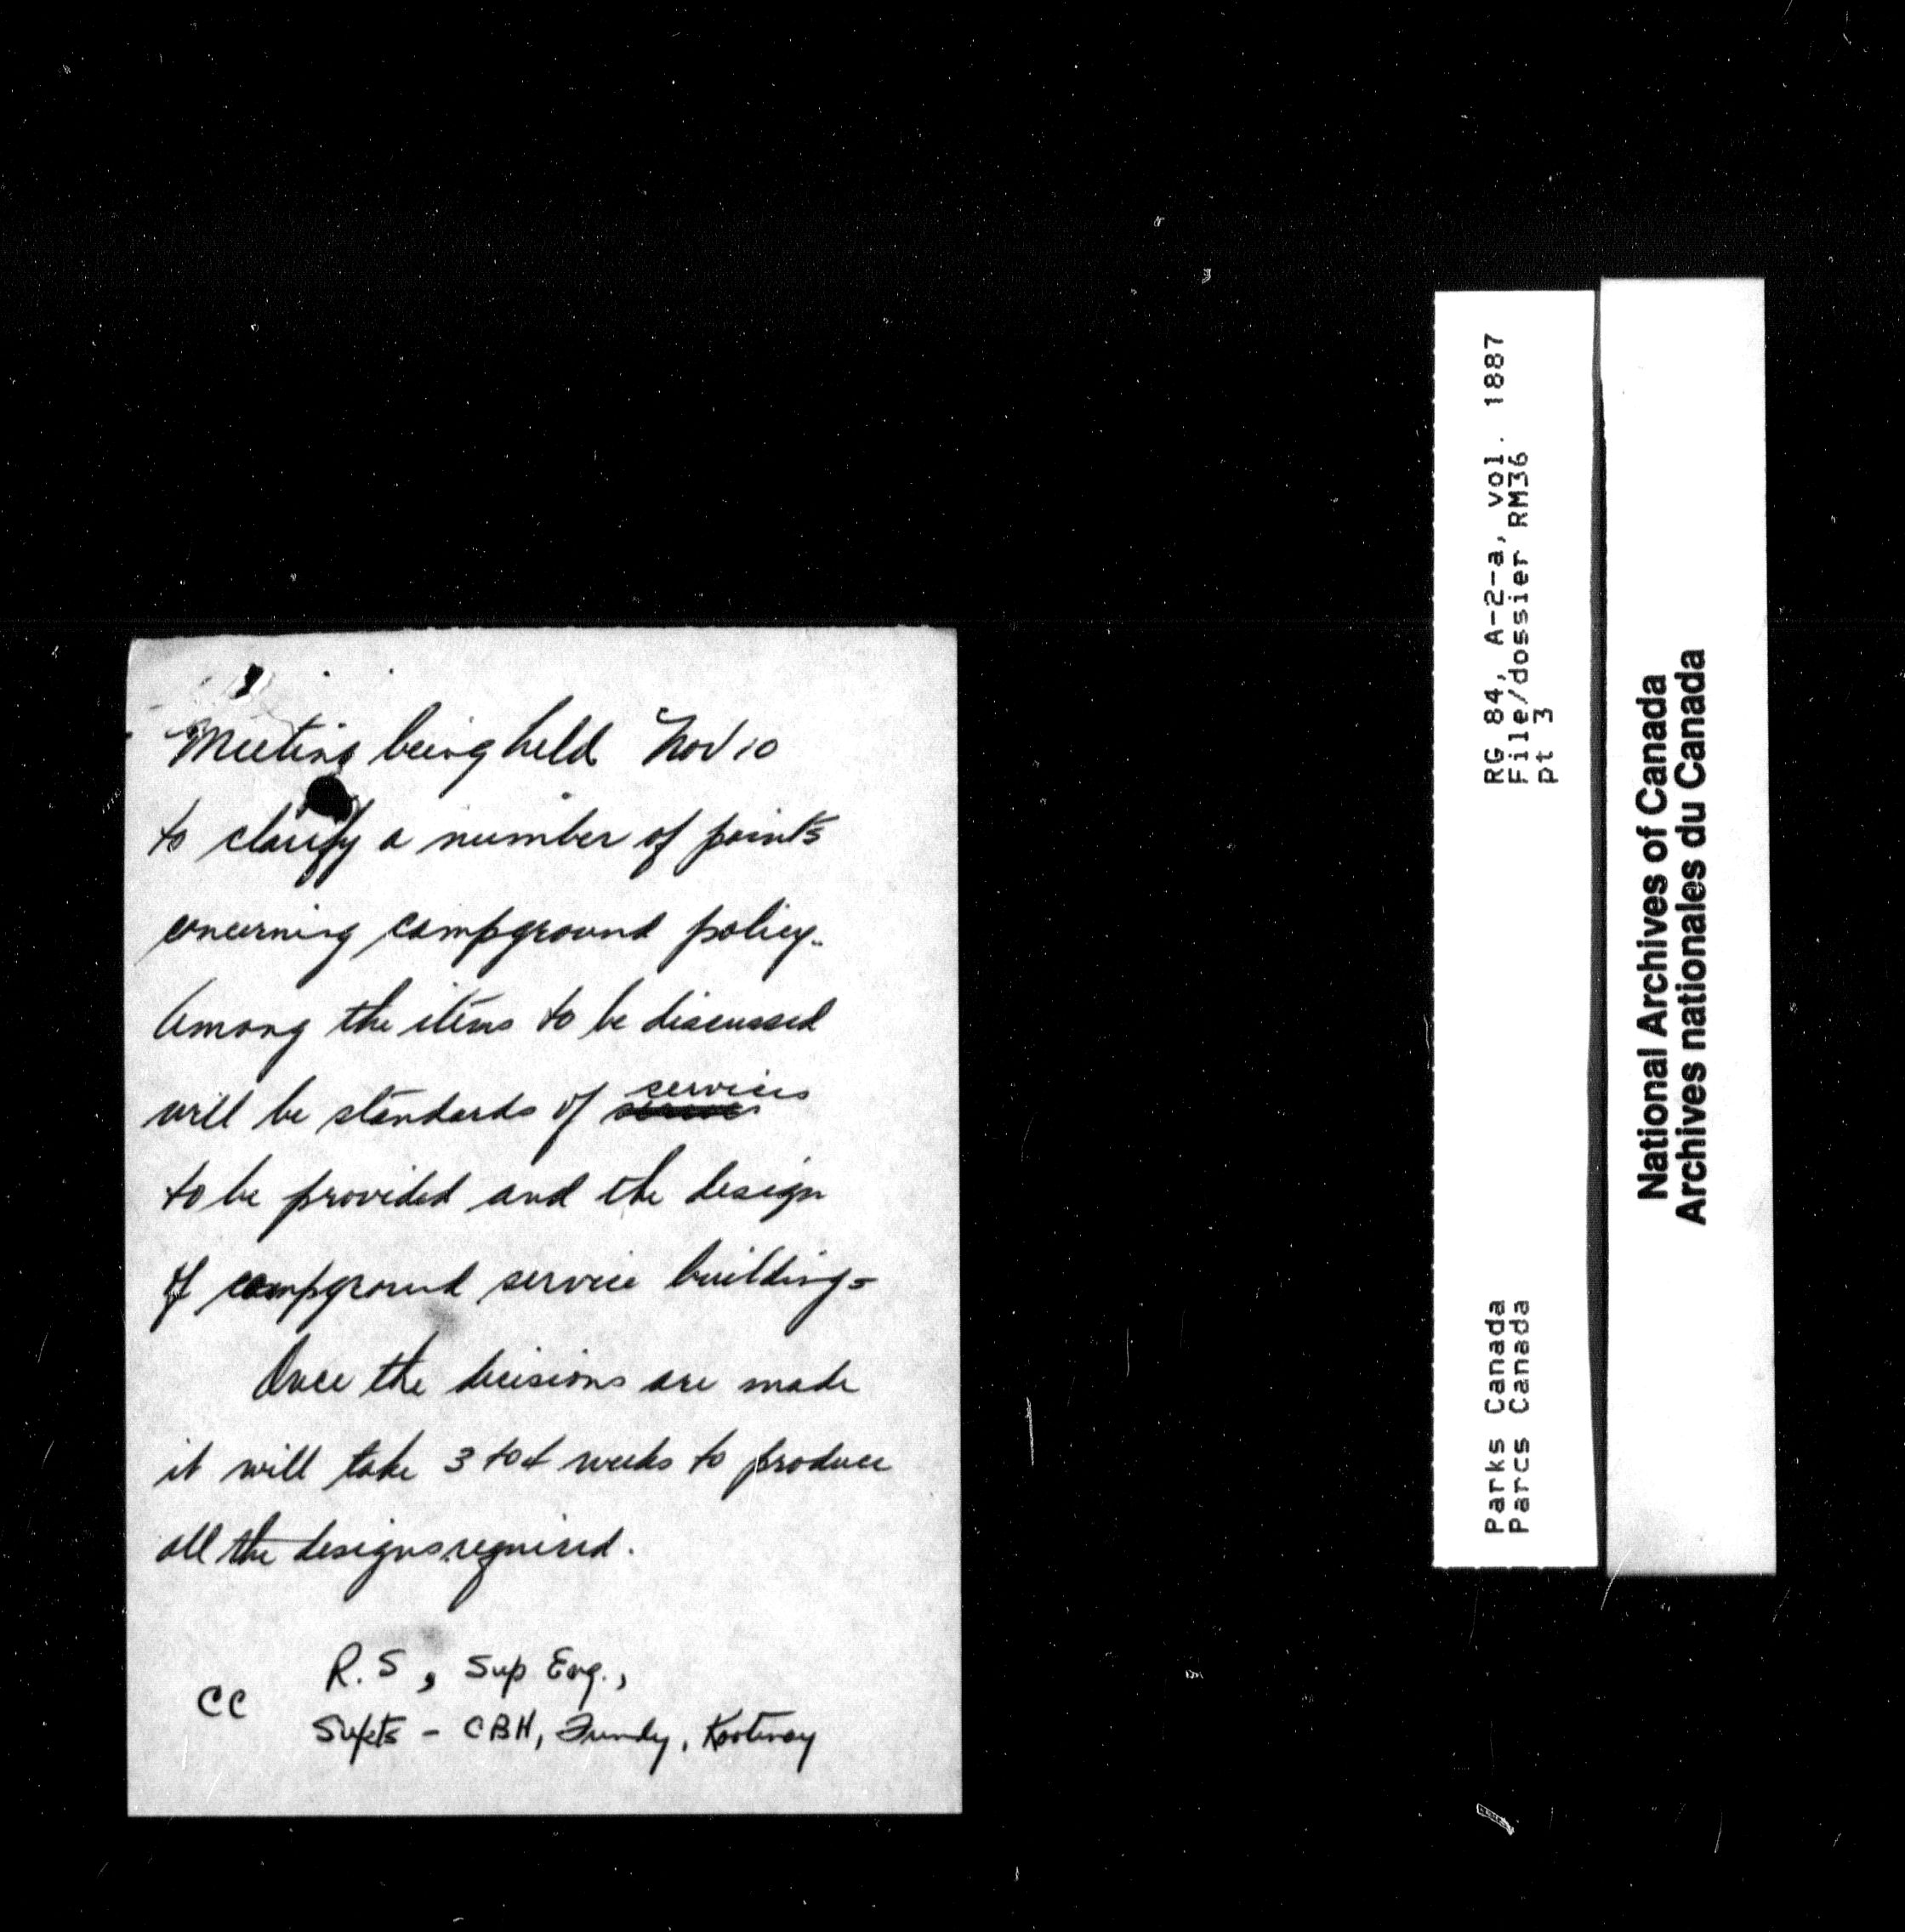 Meeting being held Nov 10
to clarify a number of points
concerning campground policy.
Among the items to be discussed
will be standards of services
to be provided and the design
of campground service buildings
Once the decisions are made
it will take 3 to 4 weeks to produce
all the designs required.
CC R.S, Sup Eng.,
Supts - CBH, Fundy, Kootenay
RG 84, A-2-a, vol. 1887
File/dossier RM36
pt 3
Parks Canada
Parcs Canada
National Archives of Canada
Archives nationales du Canada